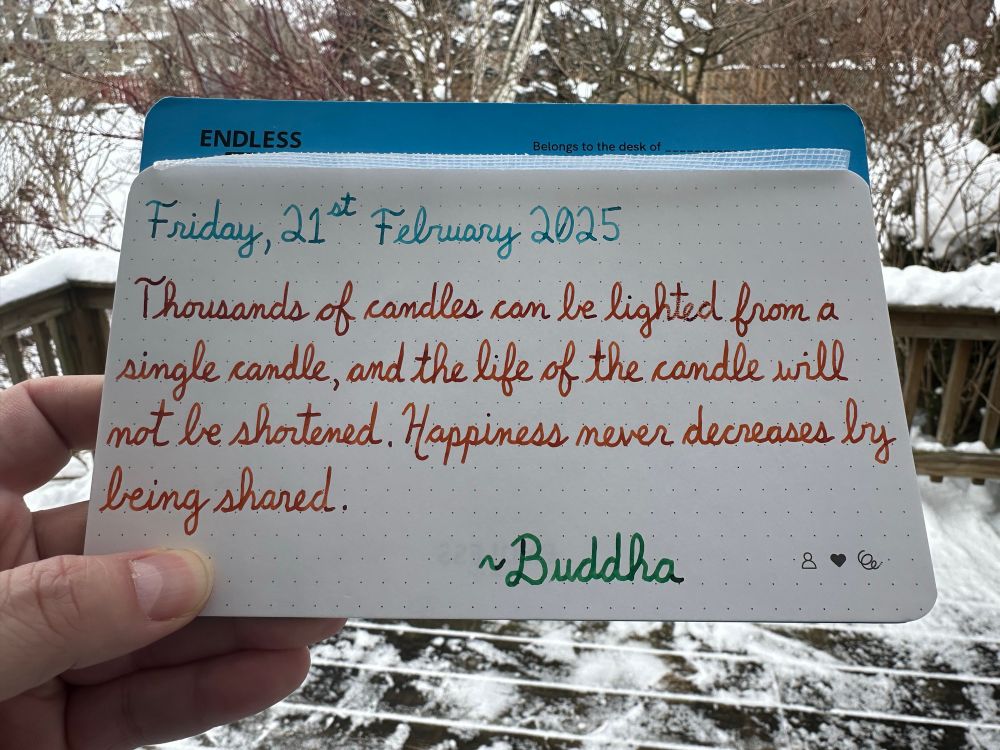 ENDLESS
Belongs to the desk of
Friday, 21st February 2025
Thousands of candles can be lighted from a
single candle, and the life of the candle will
not be shortened. Happiness never decreases by
being shared.
~Buddha